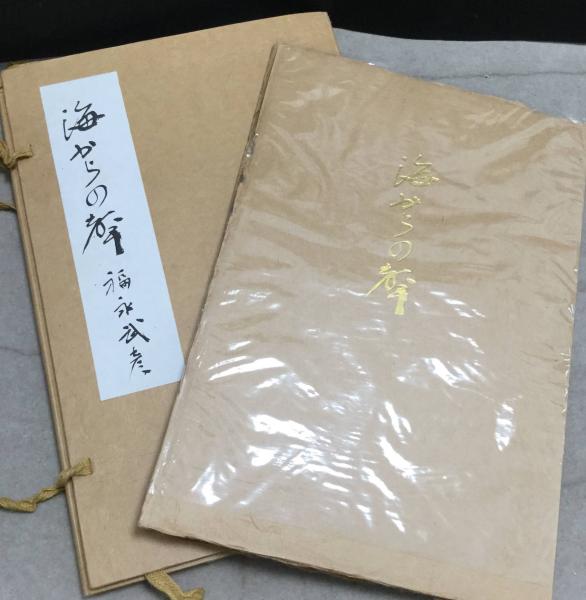 海からの聲
福永武彦
海からの聲